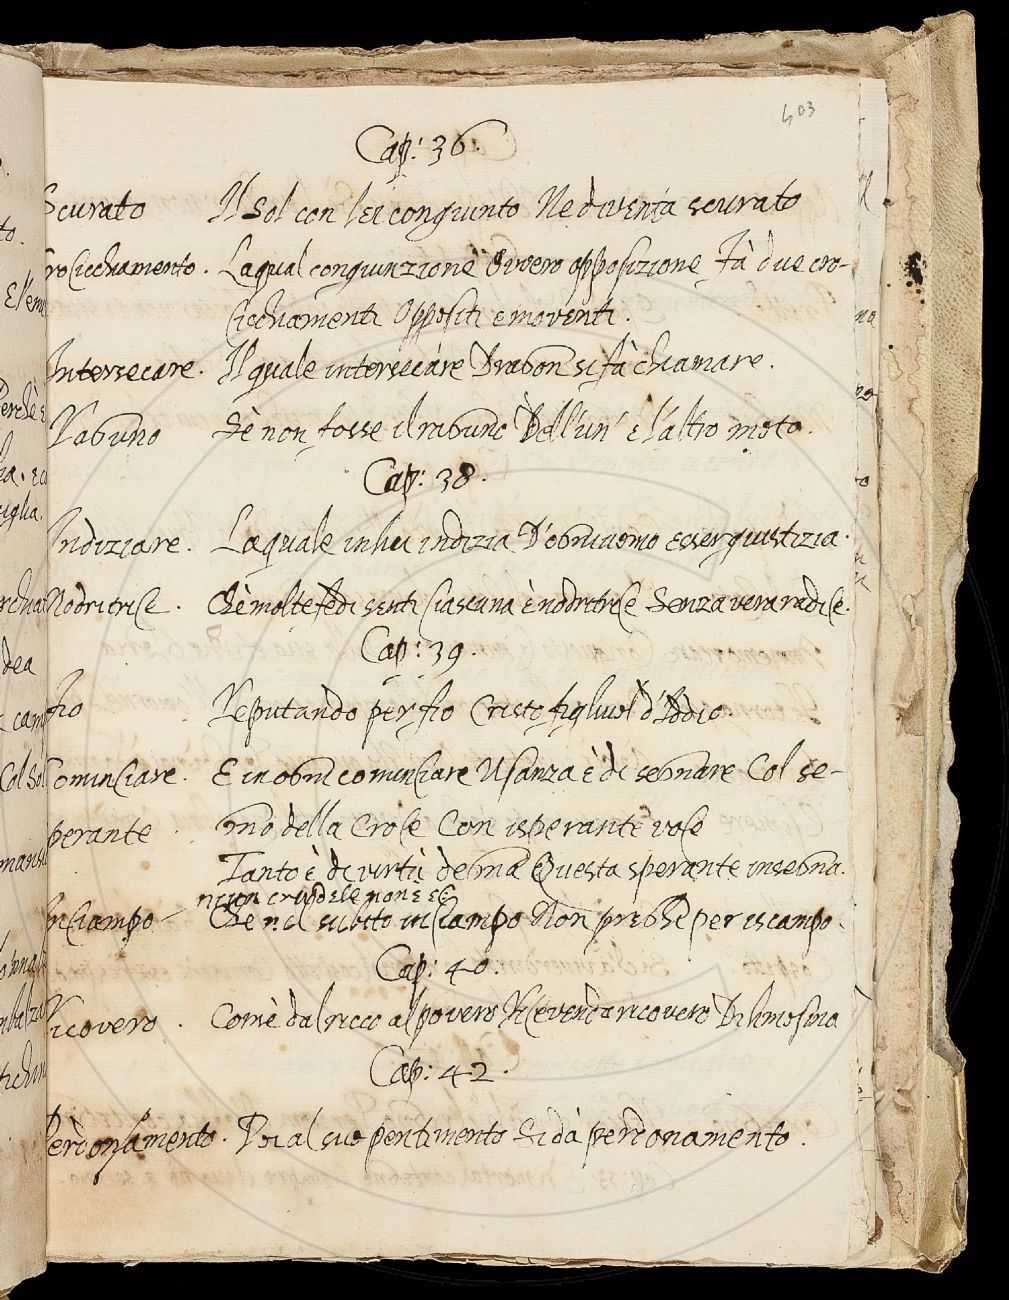 403
Cap: 36.
Scurato Il Sol con lei congiunto Ne diventa scurato
crocicchiamento. La qual congiunzione Ovvero opposizione Fà due cro-
cicchiamenti Oppositi e moventi.
Intersecare. Il quale intersecare Dragon si fà chiamare.
Raguno Sè non fosse il raguno Dell'un' e l'altro moto.
Cap: 38.
Indiziare. La quale in lui indizia D'ogni uomo esser giustizia.
Nodritrice. Chè molte fedi senti Ciascuna è nodritrice Senza vera radice.
Cap: 39.
fio Reputando per fio Cristo figliuol d'Iddio.
Cominciare. E in ogni cominciare Usanza è di segnare Col se-
sperante gno della Croce Con isperante voce
Tanto è di virtù degna Questa sperante insegna.
niun crudele non è se
Inciampo - Che nel subito inciampo Non prese per iscampo.
Cap: 40.
Ricovero. Com'è dal ricco al povero Ricevendo ricovero Di limosina
Cap: 42.
Perdonamento. Poi al suo pentimento Si dà perdonamento.